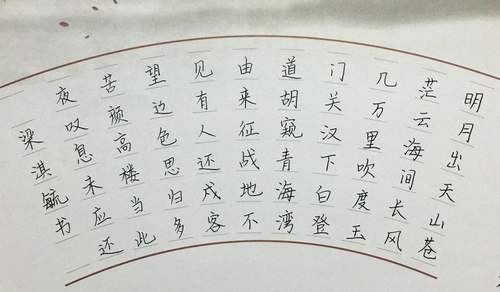 明月出天山苍
茫云海间长风
几万里吹度玉
门关汉下白登
道胡窥青海湾
由来征战地不
见有人还戍客
望边色思归多
苦颜高楼当此
夜叹息未应还
梁淇毓书